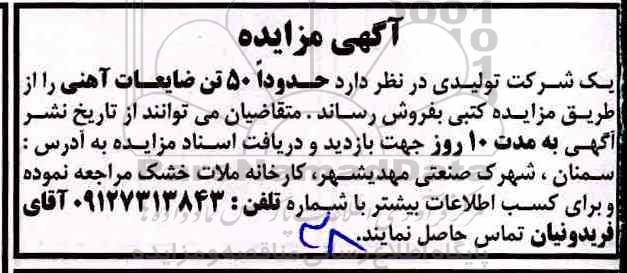 آگهی مزایده
یک شرکت تولیدی در نظر دارد حدوداً ۵۰ تن ضایعات آهنی را از
طریق مزایده کتبی بفروش رساند . متقاضیان می توانند از تاریخ نشر
آگهی به مدت ۱۰ روز جهت بازدید و دریافت اسناد مزایده به آدرس :
سمنان ، شهرک صنعتی مهدیشهر، کارخانه ملات خشک مراجعه نموده
و برای کسب اطلاعات بیشتر با شماره تلفن : ۰۹۱۲۷۳۱۳۸۴۳ آقای
فریدونیان تماس حاصل نمایند.